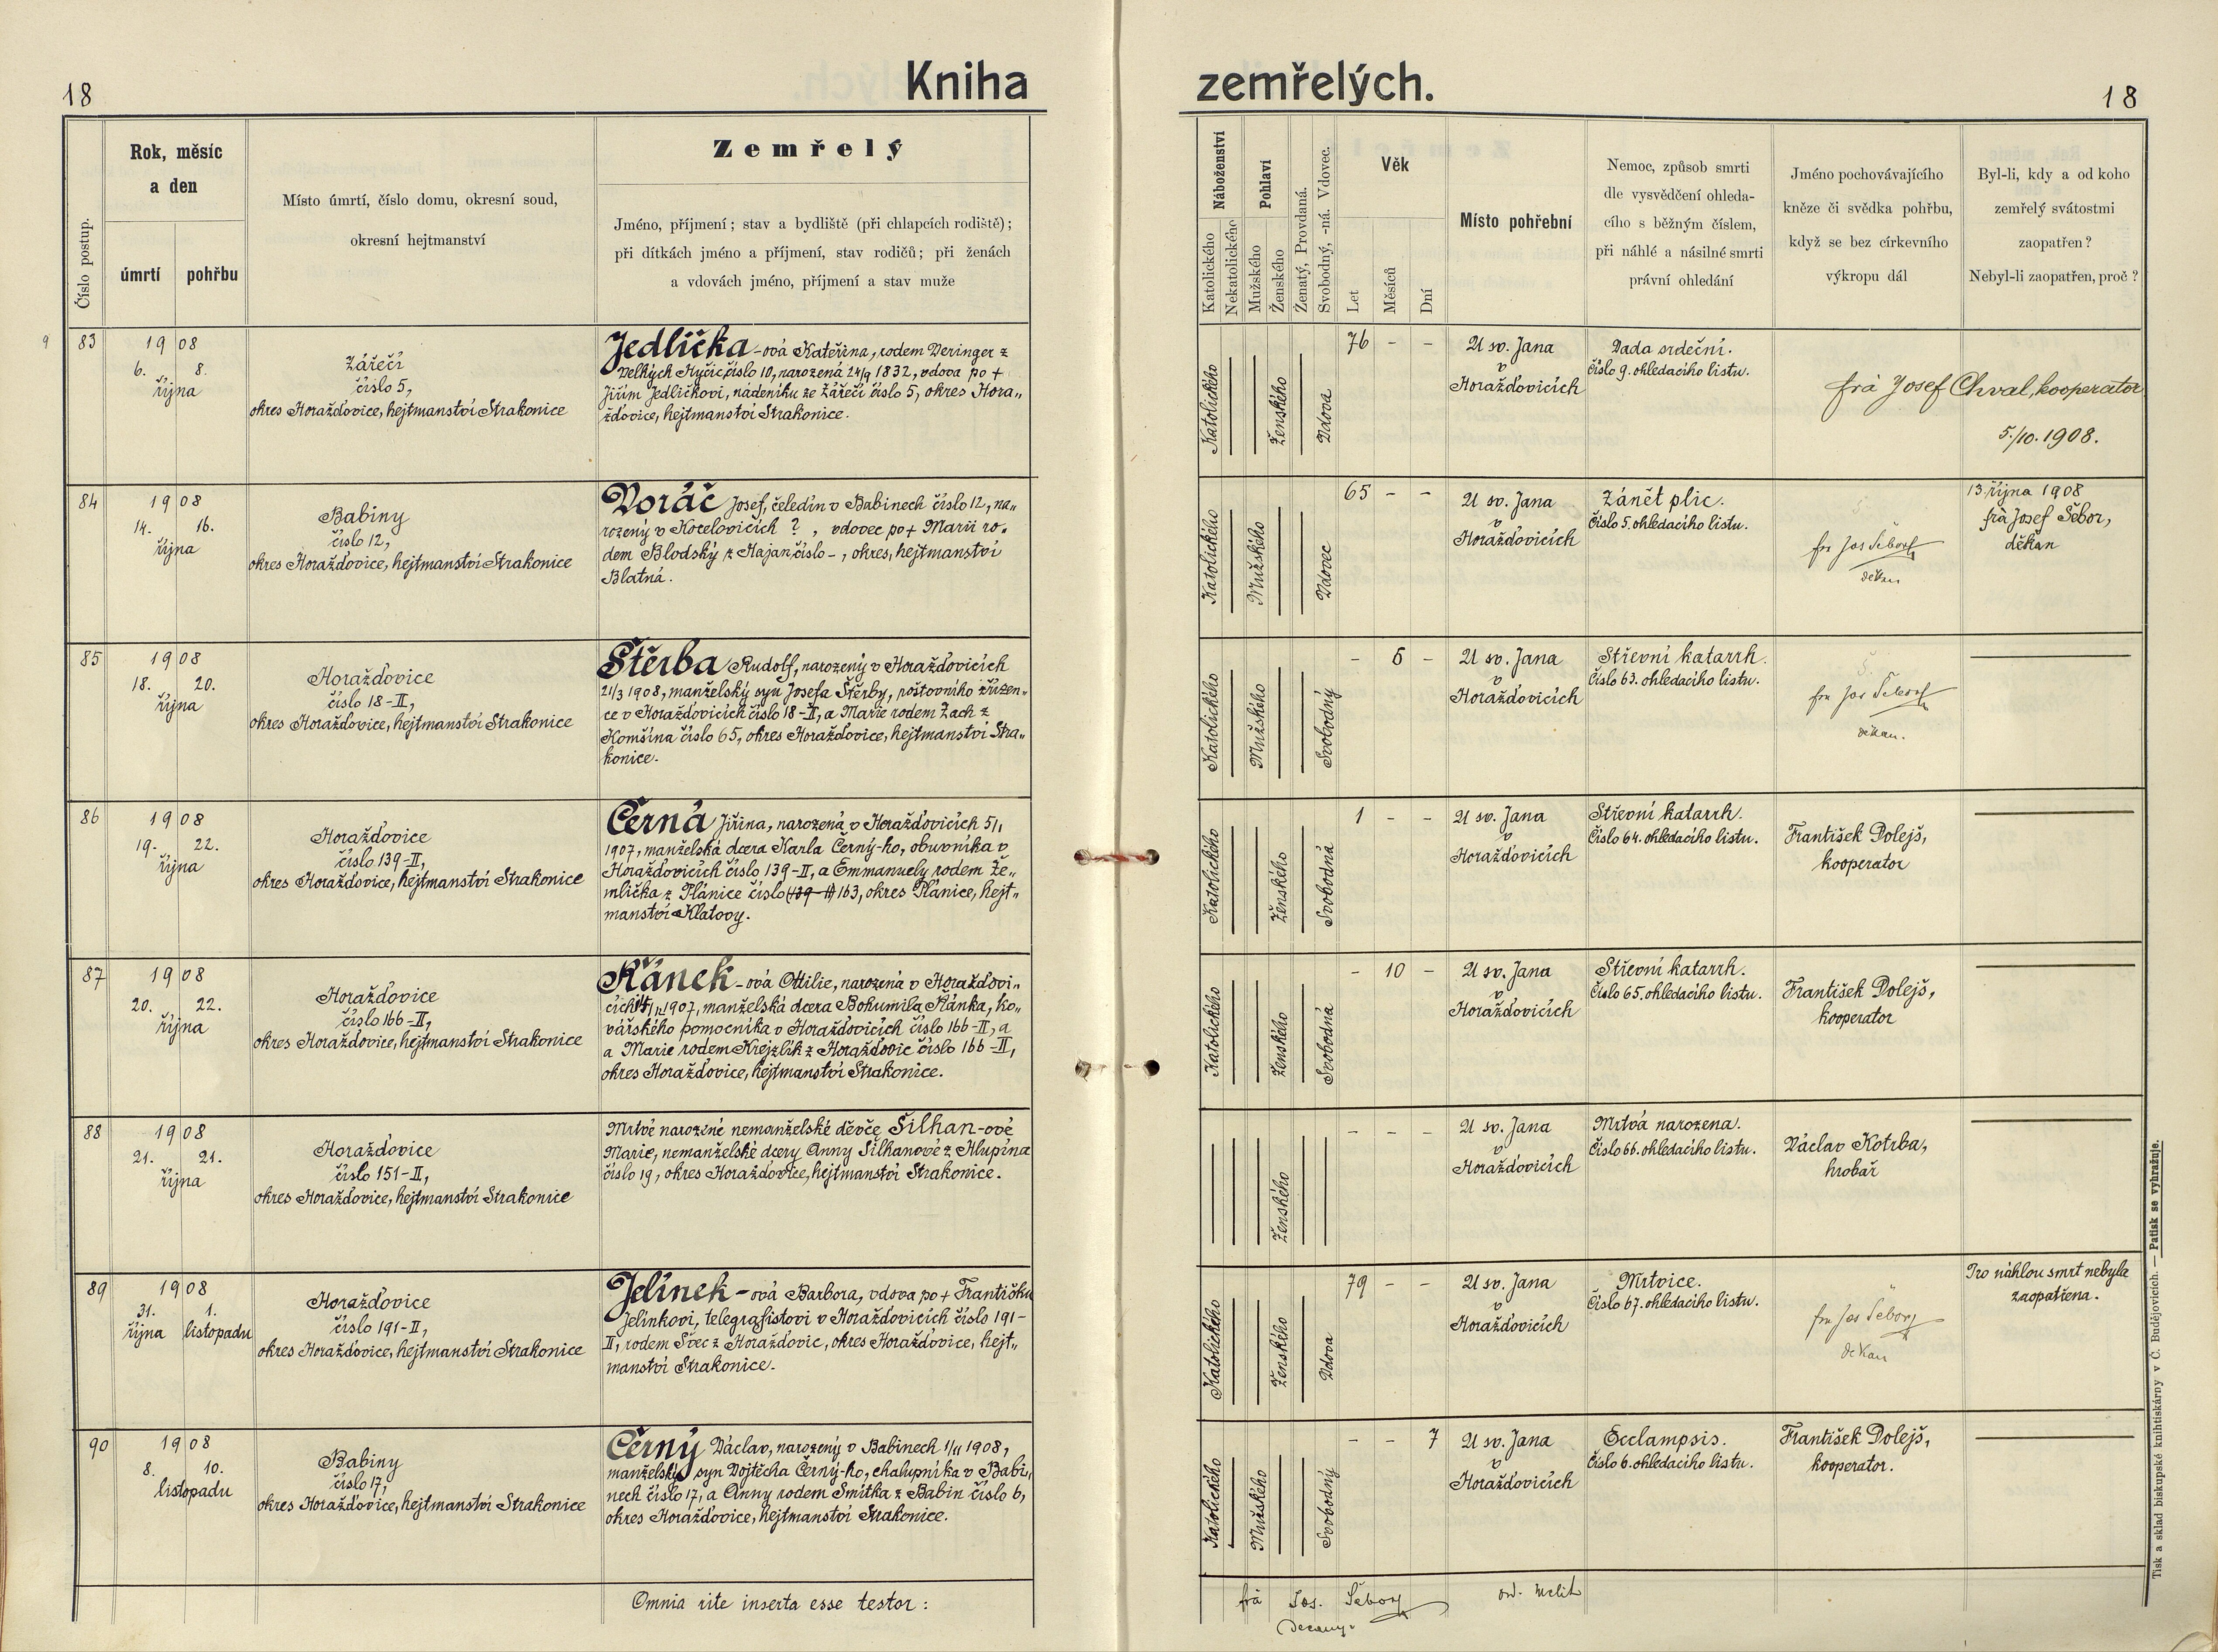 18
Kniha
zemřelých.
18
Číslo postup.
Rok, měsíc
a den
úmrtí
pohřbu
Místo úmrtí, číslo domu, okresní soud,
okresní hejtmanství
Zemřelý
Jméno, příjmení; stav a bydliště (při chlapcích rodiště);
při dítkách jméno a příjmení, stav rodičů; při ženách
a vdovách jméno, příjmení a stav muže
Náboženství
Katolického
Nekatolického
Pohlaví
Mužského
Ženského
Ženatý, Provdaná.
Svobodný, -ná. Vdovec.
Věk
Let
Měsíců
Dní
Místo pohřební
Nemoc, způsob smrti
dle vysvědčení ohleda-
cího s běžným číslem,
při náhlé a násilné smrti
právní ohledání
Jméno pochovávajícího
kněze či svědka pohřbu,
když se bez církevního
výkropu dál
Byl-li, kdy a od koho
zemřelý svátostmi
zaopatřen?
Nebyl-li zaopatřen, proč?
9
83
1908
6. 8.
října
Zářečí
číslo 5,
okres Horažďovice, hejtmanství Strakonice
Jedlička-ová Kateřina, rodem Deringer z
Velkých Hyčic, číslo 10, narozená 24/9 1832, vdova po +
Jiřím Jedličkovi, nádeníku ze Zářečí číslo 5, okres Hora„
žďovice, hejtmanství Strakonice.
Katolického
Ženského
Vdova
76 - -
U sv. Jana
v
Horažďovicích
Vada srdeční.
Číslo 9. ohledacího listu.
frà Josef Chval, kooperator
5./10. 1908.
84
1908
14. 16.
října
Babiny
číslo 12,
okres Horažďovice, hejtmanství Strakonice
Voráč Josef, čeledín v Babinech číslo 12, na„
rozený v Kocelovicích ? , vdovec po + Marii ro„
dem Blodský z Hajan číslo - , okres, hejtmanství
Blatná.
Katolického
Mužského
Vdovec
65 - -
U sv. Jana
v
Horažďovicích
Zánět plic.
Číslo 5. ohledacího listu.
fra Jos Šebor
děkan
13. října 1908
frà Josef Šebor,
děkan
85
1908
18. 20.
října
Horažďovice
číslo 18-II,
okres Horažďovice, hejtmanství Strakonice
Štěrba Rudolf, narozený v Horažďovicích
21/3 1908, manželský syn Josefa Štěrby, poštovního zřízen„
ce v Horažďovicích číslo 18-II, a Marie rodem Žach z
Komšína číslo 65, okres Horažďovice, hejtmanství Stra„
konice.
Katolického
Mužského
Svobodný
- 6 -
U sv. Jana
v
Horažďovicích
Střevní katarrh.
Číslo 63. ohledacího listu.
fra Jos Šebor
děkan.
86
1908
19. 22.
října
Horažďovice
číslo 139-II,
okres Horažďovice, hejtmanství Strakonice
Černá Jiřina, narozená v Horažďovicích 5/1
1907, manželská dcera Karla Černý-ho, obuvníka v
Horažďovicích číslo 139-II, a Emmanuely rodem Že„
mlička z Plánice číslo (139-II) 163, okres Plánice, hejt„
manství Klatovy.
Katolického
Ženského
Svobodná
1 - -
U sv. Jana
v
Horažďovicích
Střevní katarrh.
Číslo 64. ohledacího listu.
František Dolejš,
kooperator
87
1908
20. 22.
října
Horažďovice
číslo 166-II,
okres Horažďovice, hejtmanství Strakonice
Řánek-ová Ottilie, narozená v Horažďovi„
cích 1907, manželská dcera Bohumila Řánka, ko„
vářského pomocníka v Horažďovicích číslo 166-II, a
a Marie rodem Krejzlík z Horažďovic číslo 166-II,
okres Horažďovice, hejtmanství Strakonice.
Katolického
Ženského
Svobodná
- 10 -
U sv. Jana
v
Horažďovicích
Střevní katarrh.
Číslo 65. ohledacího listu.
František Dolejš,
kooperator
88
1908
21. 21.
října
Horažďovice
číslo 151-II,
okres Horažďovice, hejtmanství Strakonice
Mrtvé narozené nemanželské děvče Šilhan-ové
Marie, nemanželské dcery Anny Šilhanové z Hlupína
číslo 19, okres Horažďovice, hejtmanství Strakonice.
Ženského
- - -
U sv. Jana
v
Horažďovicích
Mrtvá narozena.
Číslo 66. ohledacího listu.
Václav Kotrba,
hrobař
89
1908
31. 1.
října listopadu
Horažďovice
číslo 191-II,
okres Horažďovice, hejtmanství Strakonice
Jelínek-ová Barbora, vdova po + Františku
Jelínkovi, telegrafistovi v Horažďovicích číslo 191-
II, rodem Švec z Horažďovic, okres Horažďovice, hejt„
manství Strakonice.
Katolického
Ženského
Vdova
79 - -
U sv. Jana
v
Horažďovicích
Mrtvice.
Číslo 67. ohledacího listu.
fra Jos Šebor
děkan
Pro náhlou smrt nebyla
zaopatřena.
90
1908
8. 10.
listopadu
Babiny
číslo 17,
okres Horažďovice, hejtmanství Strakonice
Černý Václav, narozený v Babinech 1/11 1908,
manželský syn Vojtěcha Černý-ho, chalupníka v Babi„
nech číslo 17, a Anny rodem Smitka z Babin číslo 6,
okres Horažďovice, hejtmanství Strakonice.
Katolického
Mužského
Svobodný
- - 7
U sv. Jana
v
Horažďovicích
Ecclampsis.
Číslo 6. ohledacího listu.
František Dolejš,
kooperator.
Omnia rite inserta esse testor:
frà Jos. Šebor
Decanus
Tisk a sklad biskupské knihtiskárny v Č. Budějovicích. — Patisk se vyhražuje.